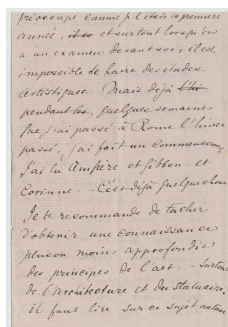 préoccupé comme je l'étais la première
année, et surtout lorsqu'on
a un examen devant soi, il est
impossible de faire des études
artistiques. Mais déjà
pendant les quelques semaines
que j'ai passé à Rome l'hiver
passé, j'ai fait un commencement,
J'ai lu Ampère et Gibbon et
Corinne. - C'est déjà quelque chose
Je te recommande de tacher
d'obtenir une connaissance
plus ou moins approfondie
des principes de l'art - surtout
de l'architecture et des statuaires,
il faut lire sur ce sujet autant